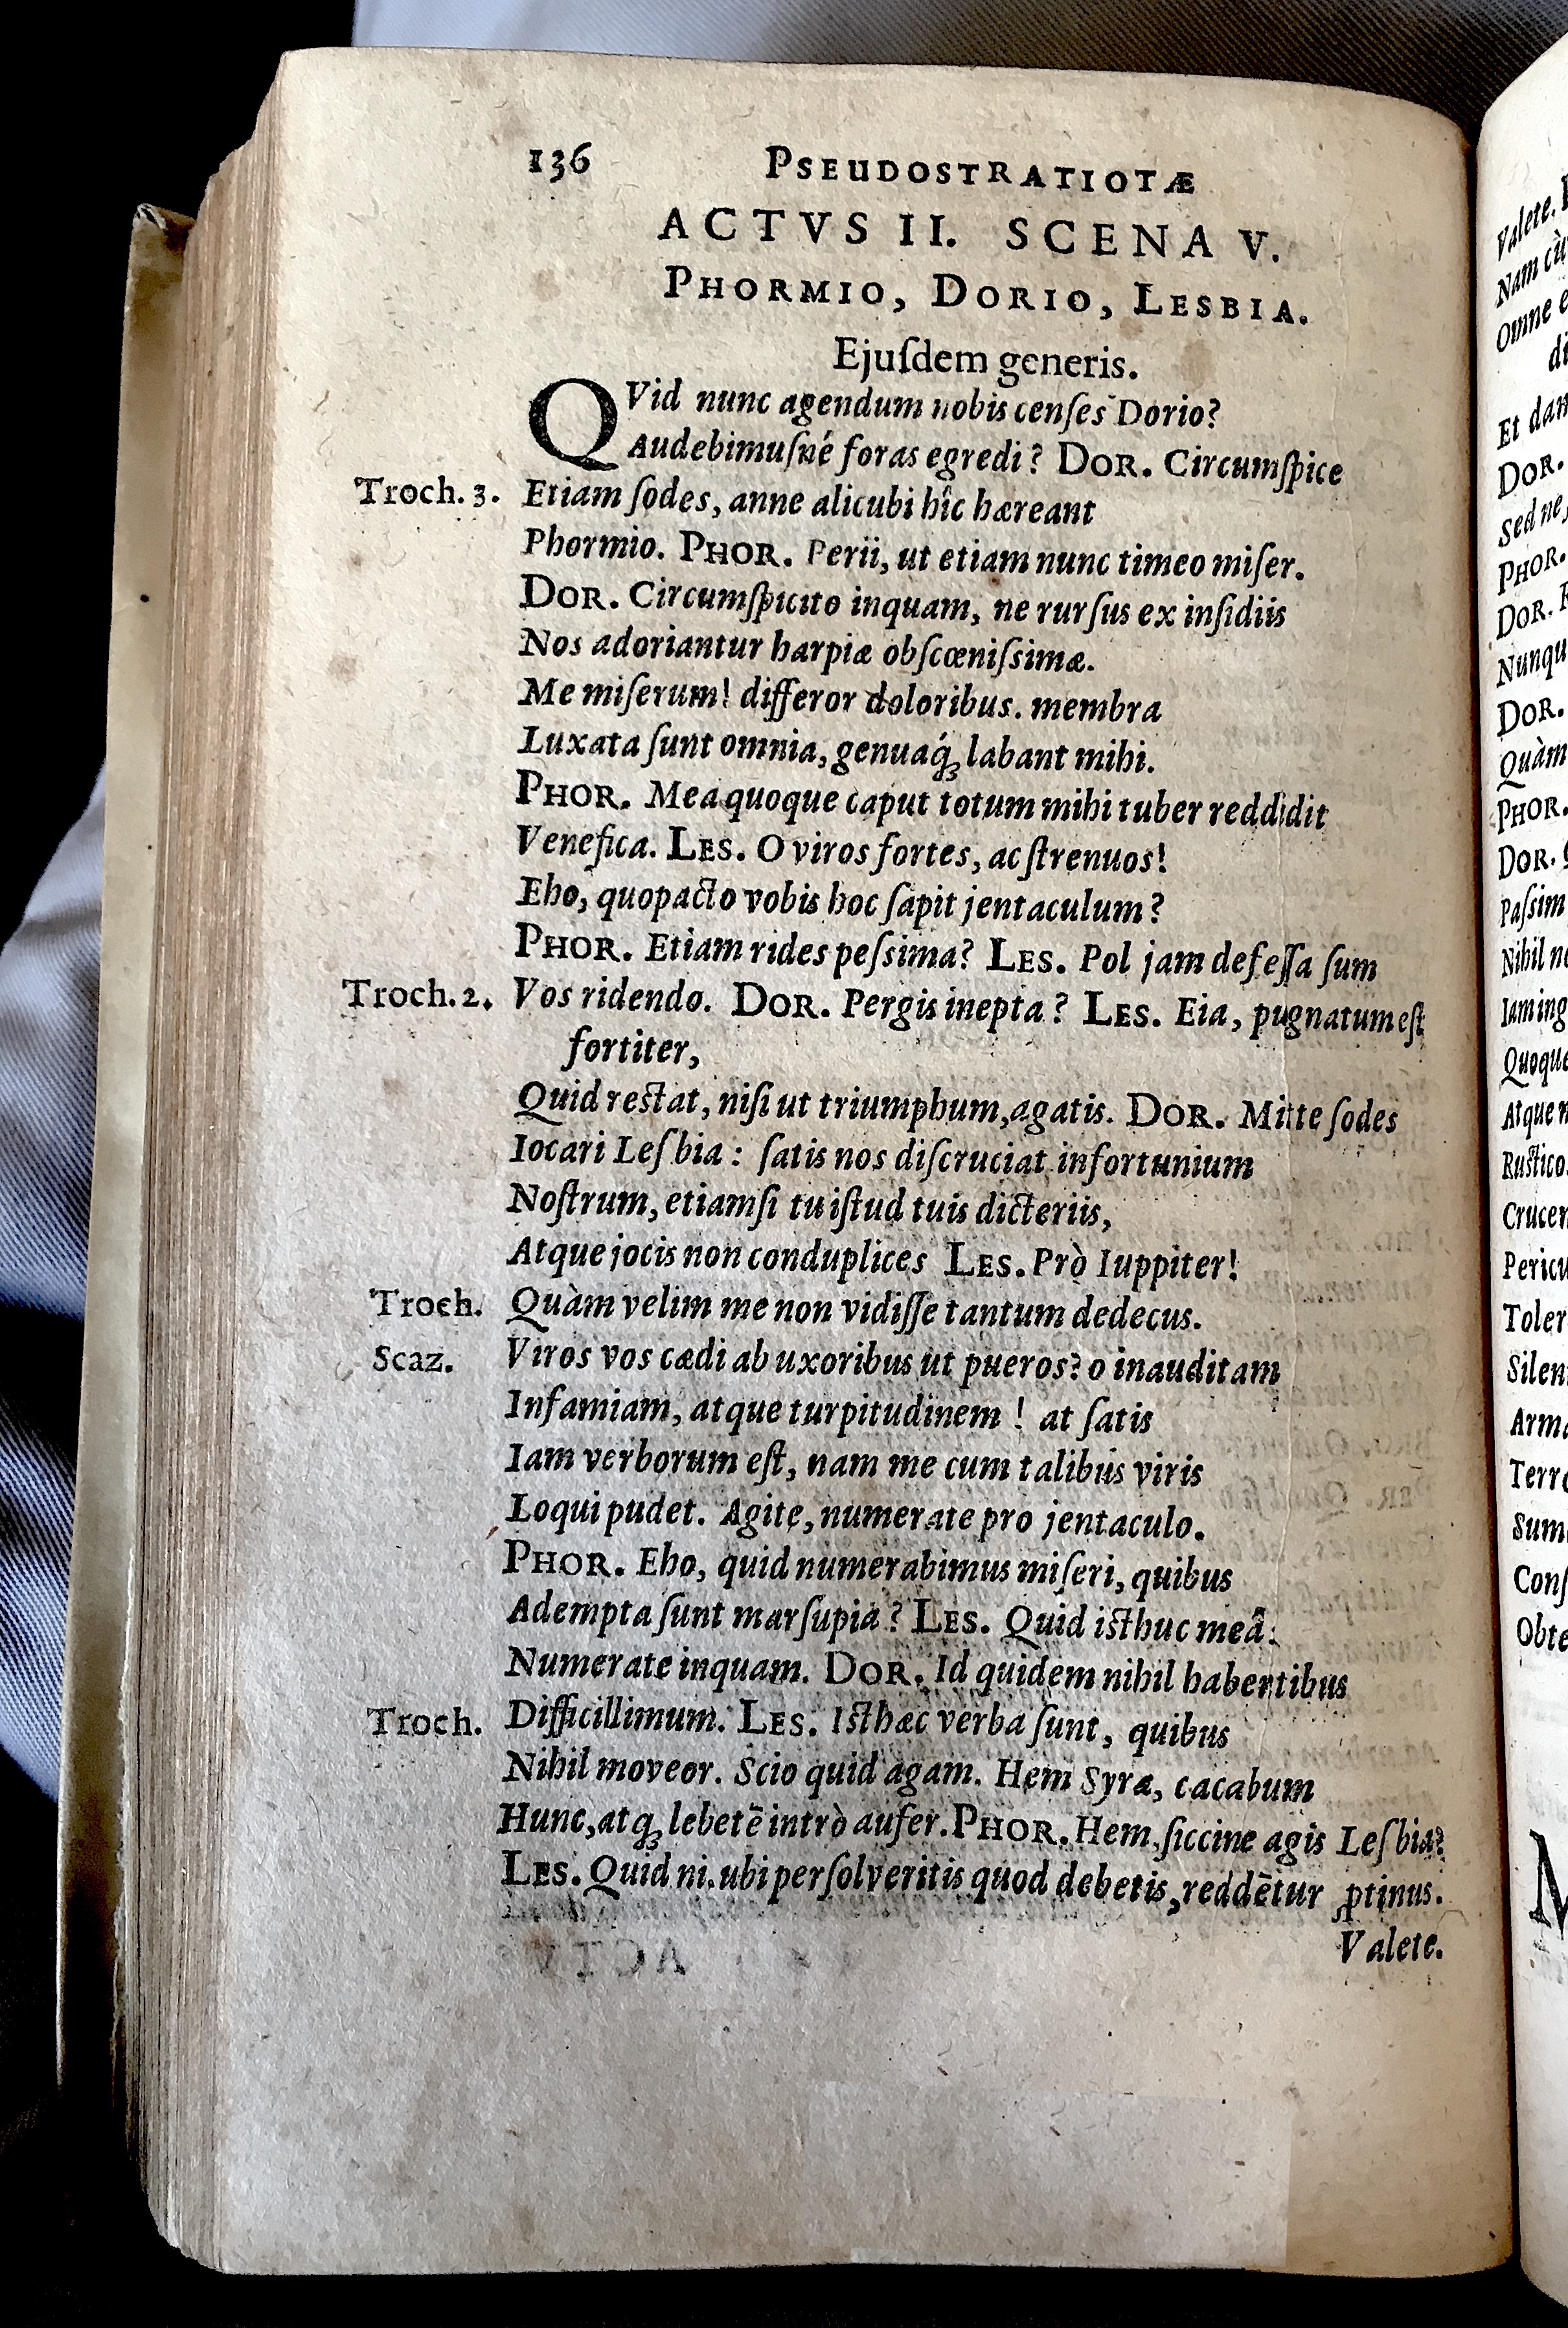 136 PSEUDOSTRATIOTÆ
ACTVS II. SCENA V.
PHORMIO, DORIO, LESBIA.
Ejuſdem generis.
QVid nunc agendum nobis cenſes Dorio?
Audebimuſné foras egredi? DOR. Circumſpice
Troch. 3. Etiam ſodes, anne alicubi hîc hæreant
Phormio. PHOR. Perii, ut etiam nunc timeo miſer.
DOR. Circumſpicito inquam, ne rurſus ex inſidiis
Nos adoriantur harpiæ obſcœniſsimæ.
Me miſerum! differor doloribus. membra
Luxata ſunt omnia, genuaq́ꝫ labant mihi.
PHOR. Mea quoque caput totum mihi tuber reddidit
Venefica. LES. O viros fortes, ac ſtrenuos!
Eho, quopacto vobis hoc ſapit jentaculum?
PHOR. Etiam rides peſsima? LES. Pol jam defeſſa ſum
Troch. 2. Vos ridendo. DOR. Pergis inepta? LES. Eia, pugnatum eſt
fortiter,
Quid restat, niſi ut triumphum, agatis. DOR. Mitte ſodes
Iocari Leſbia: ſatis nos diſcruciat infortunium
Noſtrum, etiamſi tu iſtud tuis dicteriis,
Atque jocis non conduplices LES. Prò Iuppiter!
Troch. Quàm velim me non vidiſſe tantum dedecus.
Scaz. Viros vos cædi ab uxoribus ut pueros? o inauditam
Infamiam, atque turpitudinem! at ſatis
Iam verborum eſt, nam me cum talibus viris
Loqui pudet. Agite, numerate pro jentaculo.
PHOR. Eho, quid numerabimus miſeri, quibus
Adempta ſunt marſupia? LES. Quid isthuc meâ:
Numerate inquam. DOR. Id quidem nihil habentibus
Troch. Difficillimum. LES. Isthæc verba ſunt, quibus
Nihil moveor. Scio quid agam. Hem Syra, cacabum
Hunc, atqꝫ lebetē intrò aufer. PHOR. Hem, ſiccine agis Leſbia?
LES. Quid ni. ubi perſolveritis quod debetis, reddētur ꝓtinus.
Valete.
Valete.
Nam
Omne
di
Et dam
DOR.
Sed ne
PHOR.
DOR.
Nunqu
DOR.
Quàm
PHOR.
DOR.
Paſsim
Nihil ne
Iam ing
Quoque
Atque n
Rustico
Crucem
Pericu
Toler
Silen
Arma
Terro
Sum
Conſ
Obte
M